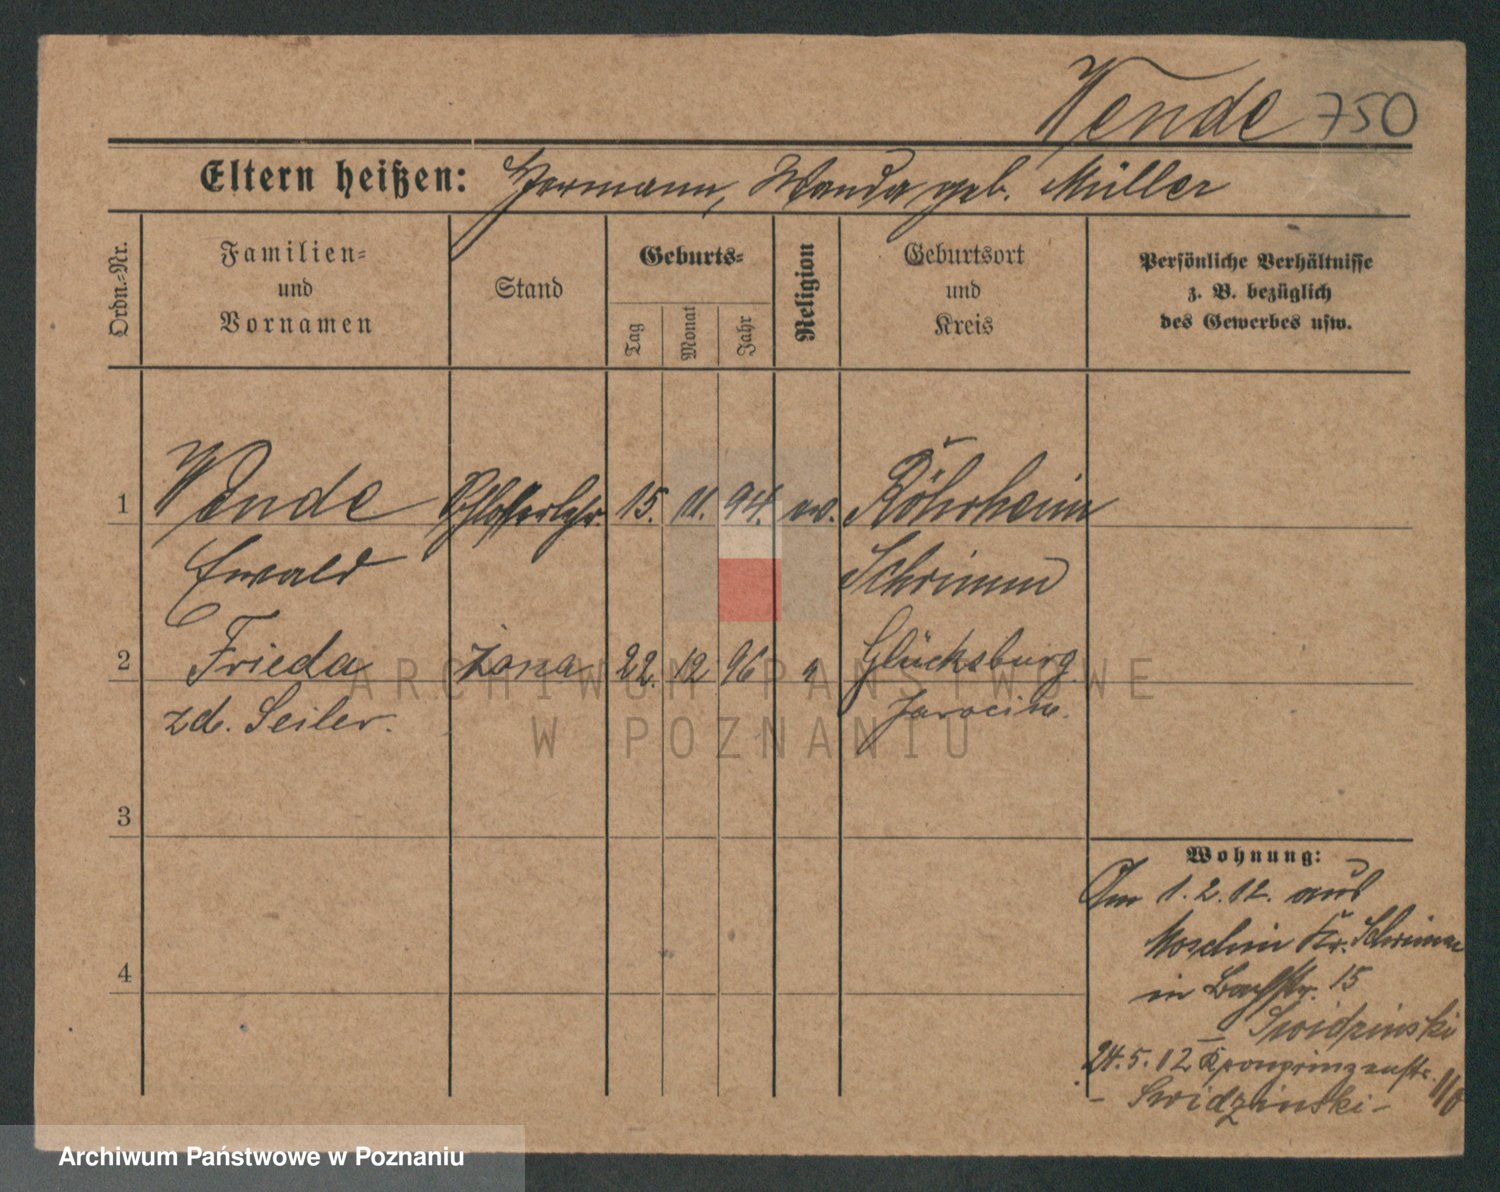 Wende 750
Eltern heißen: Hermann, Wanda geb. Müller
Ordn.-Nr.
Familien-
und
Vornamen
Stand
Geburts-
Tag
Monat
Jahr
Religion
Geburtsort
und
Kreis
Persönliche Verhältnisse
z. B. bezüglich
des Gewerbes usw.
1 Wende Schlosserlehr. 15. 11. 94. ev. Röhrheim
Ewald Schrimm
2 Frieda żona 22. 12 96 Glücksburg
zd. Seiler. Jarocin.
3
Wohnung:
Am 1. 2. 12. aus
Moschin Kr. Schrimm
4
in 15
- Swidzinski
24. 5. 12 Kronprinzenstr.
- Swidzinski -
ARCHIWUM PAŃSTWOWE
W POZNANIU
Archiwum Państwowe w Poznaniu